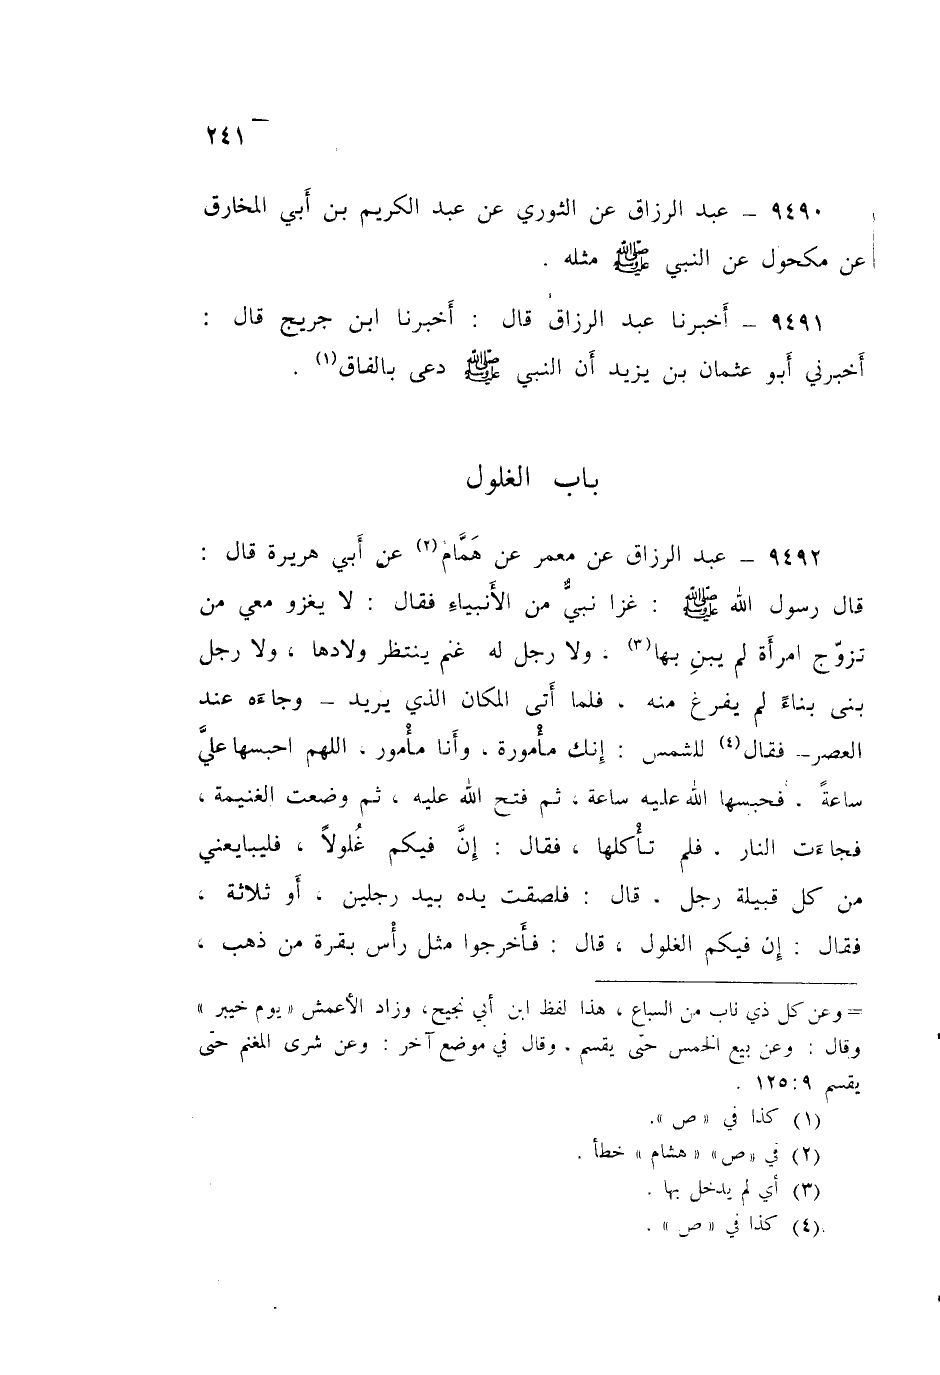 ٢٤١
٩٤٩٠ – عبد الرزاق عن الثوري عن عبد الكريم بن أبي المخارق
عن مكحول عن النبي ﷺ مثله .
٩٤٩١ – أخبرنا عبد الرزاق قال : أخبرنا ابن جريج قال :
أخبرني أبو عثمان بن يزيد أن النبي ﷺ دعى بالفاق(١) .
باب الغلول
٩٤٩٢ – عبد الرزاق عن معمر عن هَمَّام(٢) عن أبي هريرة قال :
قال رسول الله ﷺ : غزا نبيٌّ من الأنبياءِ فقال : لا يغزو معي من
تزوّج امرأة لم يبنِ بها(٣) . ولا رجل له غنم ينتظر ولادها ، ولا رجل
بنى بناءً لم يفرغ منه . فلما أتى المكان الذي يريد – وجاءَه عند
العصر– فقال(٤) للشمس : إنك مأْمورة . وأنا مأْمور . اللهم احبسها عليَّ
ساعةً . فحبسها الله عليه ساعة ، ثم فتح الله عليه ، ثم وضعت الغنيمة ،
فجاءَت النار . فلم تأْكلها ، فقال : إنَّ فيكم غُلولاً ، فليبايعني
من كل قبيلة رجل . قال : فلصقت يده بيد رجلين ، أو ثلاثة ،
فقال : إن فيكم الغلول ، قال : فأَخرجوا مثل رأْس بقرة من ذهب ،
= وعن كل ذي ناب من السباع ، هذا لفظ ابن أبي نجيح، وزاد الأعمش « يوم خيبر »
وقال : وعن بيع الخمس حتّى يقسم . وقال في موضع آخر : وعن شرى المغنم حتّى
يقسم ٩: ١٢٥ .
(١) كذا في « ص ».
(٢) في «ص» « هشام » خطأ .
(٣) أي لم يدخل بها .
(٤) كذا في « ص » .